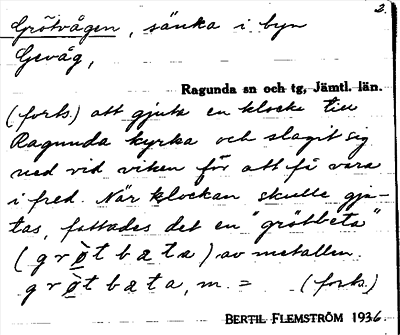 2.
Grötvågen, sänka i byn
Gevåg,
Ragunda sn och tg, Jämtl. län.
(forts.) att gjuta en klocka till
Ragunda kyrka och slagit sig
ned vid viken för att få vara
i fred. När klockan skulle gju-
tas, fattades det en "grötbeta"
(grø̀tbæta) av metallen.
grø̀tbæta, m. = (forts.)
BERTIL FLEMSTRÖM 1936.